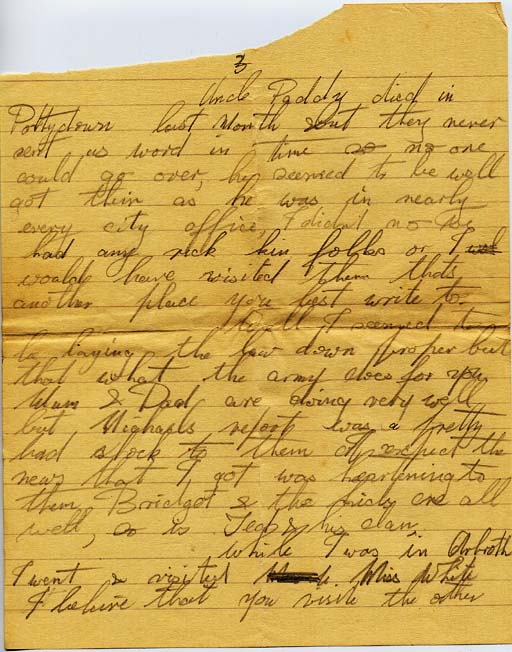 3
Uncle Paddy died in
Pottydown last Month but they never
sent us word in time so no one
could go over, he seemed to be well
got their as he was in nearly
every city office, I didn't no we
had any rick kin folks or I
would have visited them thats
another place you best write to.
Well I seemed to
be laying the law down proper but
that what the army does for you
Mum & Dad are doing very well
but Michaels report was a pretty
bad stock to them I expect the
news that I got was heartening to
them, Bridget & the micks are all
well, so is & his clan.
While I was in Arbroth
I went & visited Miss White
I beleive that you visite the other